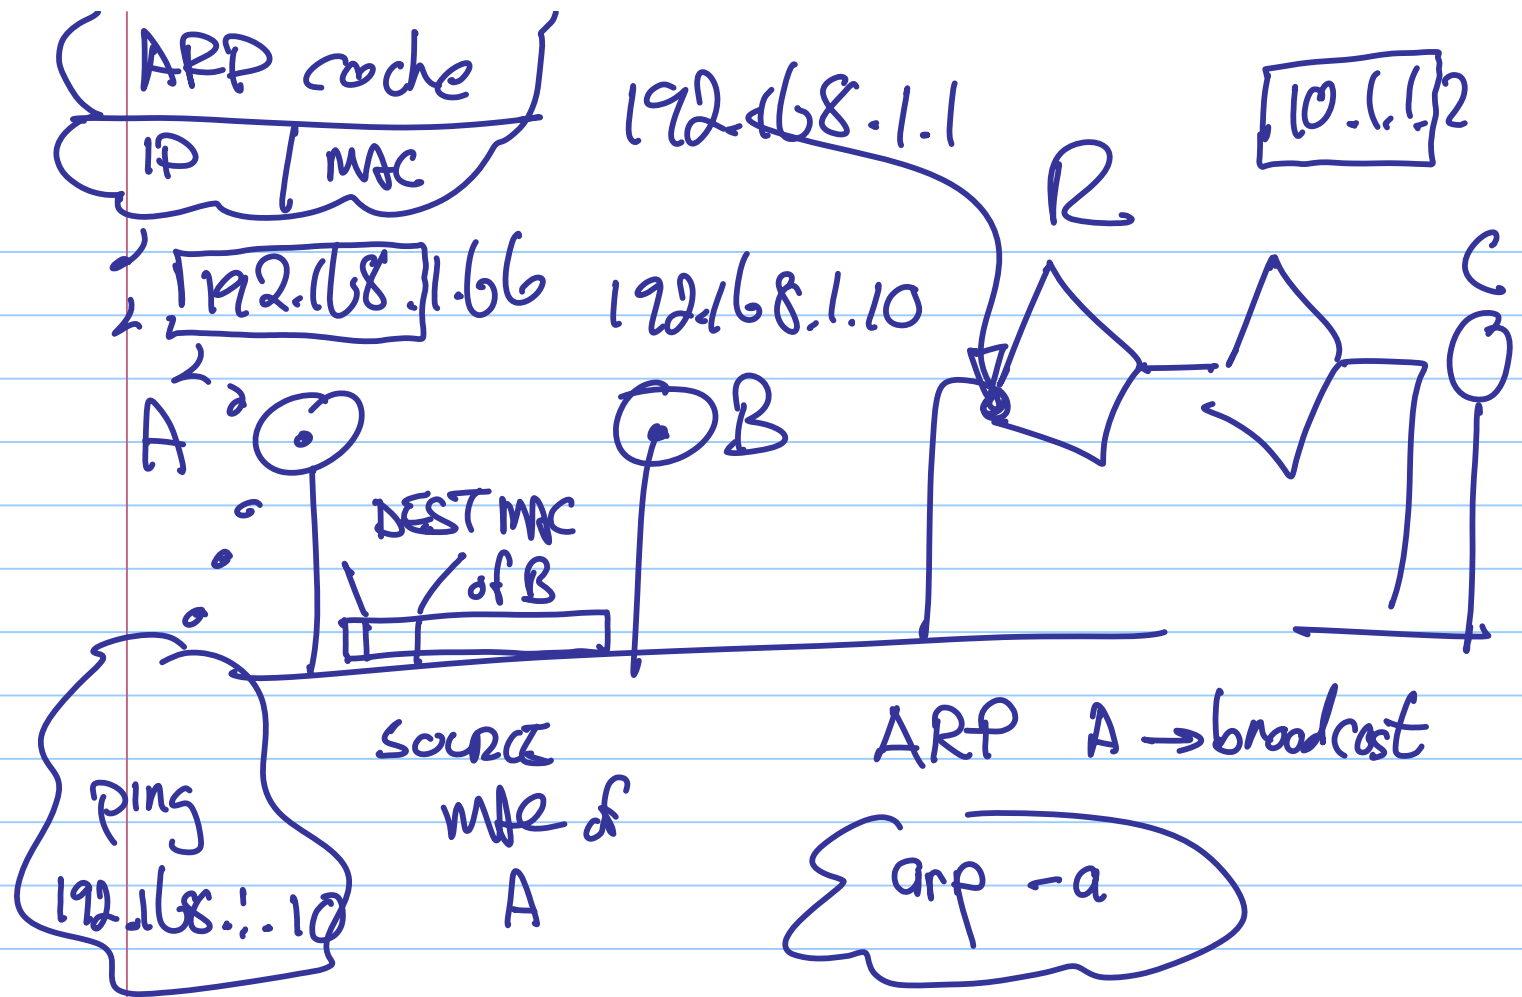 ARP code
IP | MAC
192.168.1.1
10.1.1.2
R
C
192.168.1.66
192.168.1.10
A
B
DEST MAC
of B
source
MAC of
A
ARP A → broadcast
ping
192.168.1.10
arp -a